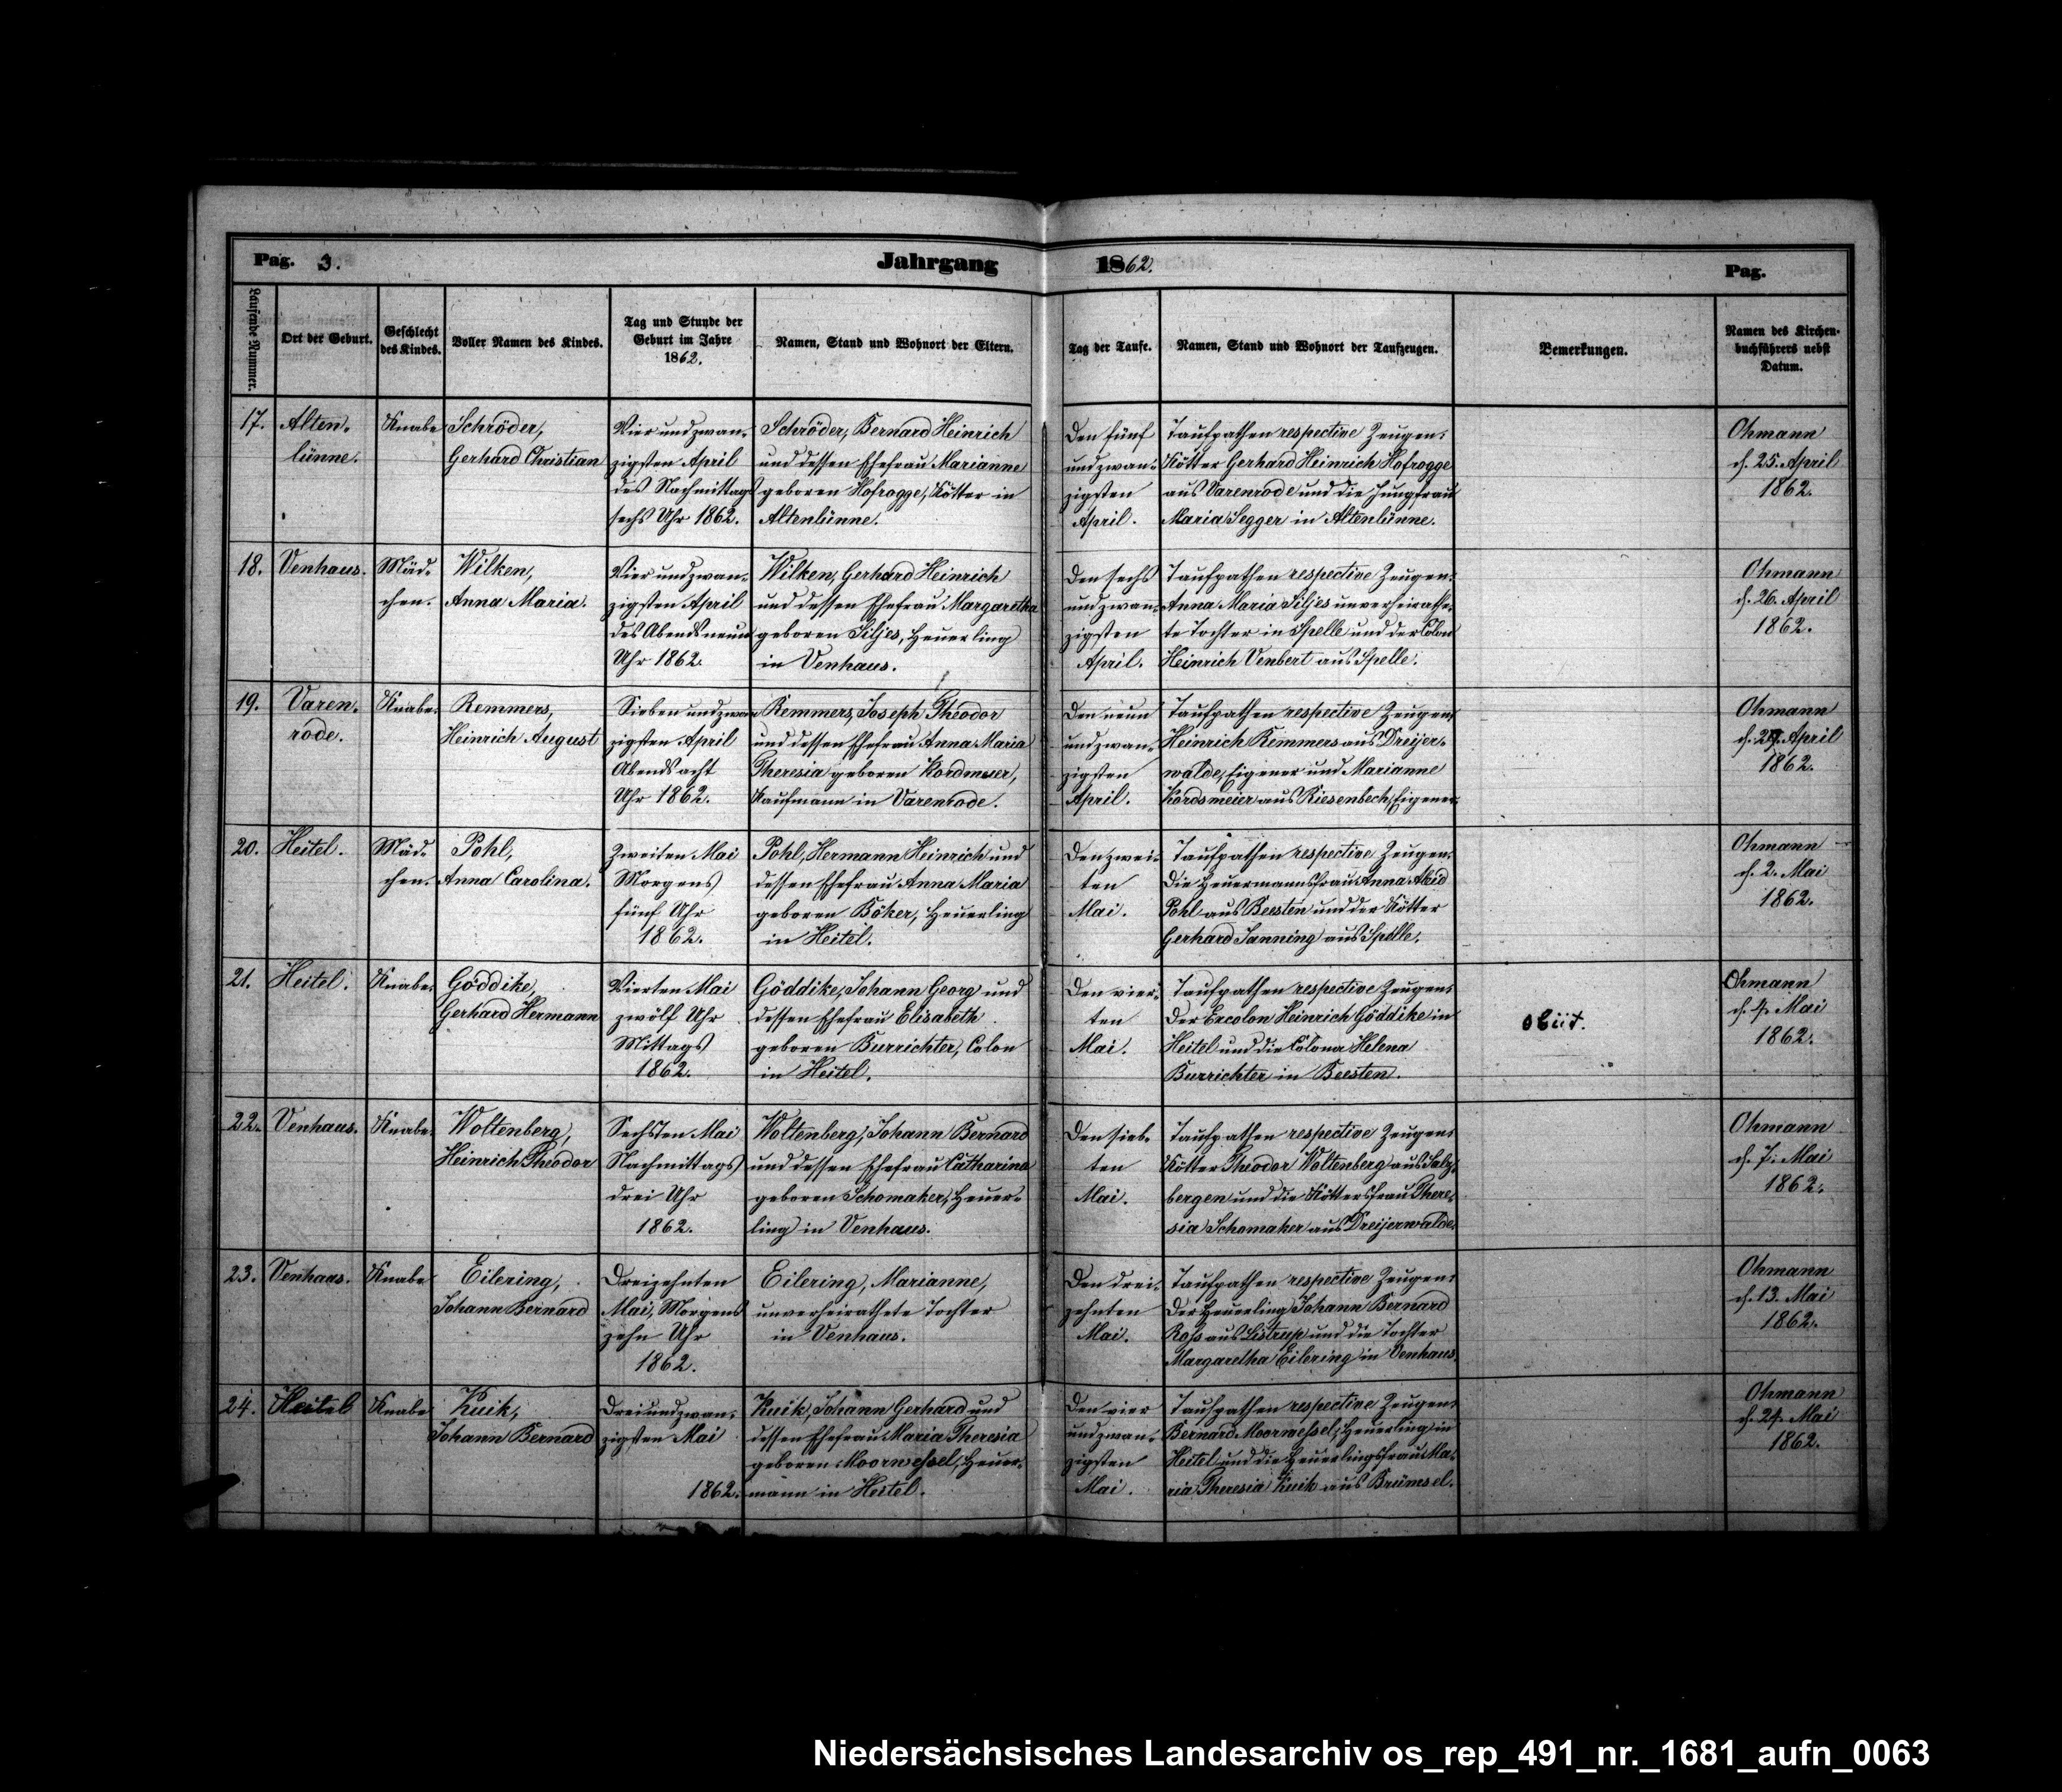 Pag. 3.
Jahrgang 1862.
Pag.
Laufende Nummer.
Ort der Geburt.
Geschlecht
des Kindes.
Voller Namen des Kindes.
Tag und Stunde der
Geburt im Jahre
1862.
Namen, Stand und Wohnort der Eltern.
Tag der Taufe.
Namen, Stand und Wohnort der Taufzeugen.
Bemerkungen.
Namen des Kirchen-
buchführers nebst
Datum.
17.
Alten-
lünne.
Knabe
Schröder,
Gerhard Christian
Vier und zwan-
zigsten April
des Nachmittags
sechs Uhr 1862.
Schröder, Bernard Heinrich
und dessen Ehefrau Marianne
geboren Hofrogge, Kötter in
Altenlünne.
Den fünf
und zwan-
zigsten
April.
Taufpathen respective Zeugen:
Kötter Gerhard Heinrich Hofrogge
aus Varenrode und die Jungfrau
Maria Segger in Altenlünne.
Ohmann
d. 25. April
1862.
18.
Venhaus.
Mäd-
chen.
Wilken,
Anna Maria.
Vier und zwan-
zigsten April
des Abends neun
Uhr 1862.
Wilken, Gerhard Heinrich
und dessen Ehefrau Margaretha
geboren Siljes, Heuerling
in Venhaus.
Den sechs
und zwan-
zigsten
April.
Taufpathen respective Zeugen:
Anna Maria Siljes unverheirathe-
te Tochter in Spelle und der Colon
Heinrich Venbert aus Spelle.
Ohmann
d. 26. April
1862.
19.
Varen-
rode.
Knabe.
Remmers,
Heinrich August
Sieben und zwan-
zigsten April
Abends acht
Uhr 1862.
Remmers, Joseph Theodor
und dessen Ehefrau Anna Maria
Theresia geboren Kordmeier,
Kaufmann in Varenrode.
Den neun
und zwan-
zigsten
April.
Taufpathen respective Zeugen:
Heinrich Remmers aus Dreijer-
walde, Eigener und Marianne
Kordsmeier aus Riesenbech, Eigener.
Ohmann
d. 29. April
1862.
20.
Heitel.
Mäd-
chen.
Pohl,
Anna Carolina.
Zweiten Mai
Morgens
fünf Uhr
1862.
Pohl, Hermann Heinrich und
dessen Ehefrau Anna Maria
geboren Böker, Heuerling
in Heitel.
Den zwei-
ten
Mai.
Taufpathen respective Zeugen:
Die Heuermannsfrau Anna Aleid
Pohl aus Beesten und der Kötter
Gerhard Sanning aus Spelle.
Ohmann
d. 2. Mai
1862.
21.
Heitel.
Knabe.
Göddike,
Gerhard Hermann
Vierten Mai
zwölf Uhr
Mittags
1862.
Göddike, Johann Georg und
dessen Ehefrau Elisabeth
geboren Burrichter, Colon
in Heitel.
Den vier-
ten
Mai.
Taufpathen respective Zeugen:
Der Excolon Heinrich Göddike in
Heitel und die Colona Helena
Burrichter in Beesten.
obiit.
Ohmann
d. 4. Mai
1862.
22.
Venhaus.
Knabe.
Woltenberg,
Heinrich Theodor
Sechsten Mai
Nachmittags
drei Uhr
1862.
Woltenberg, Johann Bernard
und dessen Ehefrau Catharina
geboren Schomaker, Heuer-
ling in Venhaus.
Den sieb-
ten
Mai.
Taufpathen respective Zeugen:
Kötter Theodor Woltenberg aus Salz-
bergen und die Köttersfrau There-
sia Schomaker aus Dreijerwalde.
Ohmann
d. 7. Mai
1862.
23.
Venhaus.
Knabe
Eilering,
Johann Bernard
Dreizehnten
Mai, Morgens
zehn Uhr
1862.
Eilering, Marianne,
unverheirathete Tochter
in Venhaus.
Den drei-
zehnten
Mai.
Taufpathen respective Zeugen:
Der Heuerling Johann Bernard
Roß aus Listrup und die Tochter
Margaretha Eilering in Venhaus.
Ohmann
d. 13. Mai
1862.
24.
Heitel
Knabe
Kuik,
Johann Bernard
Drei und zwan-
zigsten Mai
1862.
Kuik, Johann Gerhard und
dessen Ehefrau Maria Theresia
geboren Moorwessel, Heuer-
mann in Heitel.
Den vier
und zwan-
zigsten
Mai.
Taufpathen respective Zeugen:
Bernard Moorwessel, Heuerling in
Heitel und die Heuerlingsfrau Ma-
ria Theresia Kuik aus Brümsel.
Ohmann
d. 24. Mai
1862.
Niedersächsisches Landesarchiv os_rep_491_nr._1681_aufn_0063